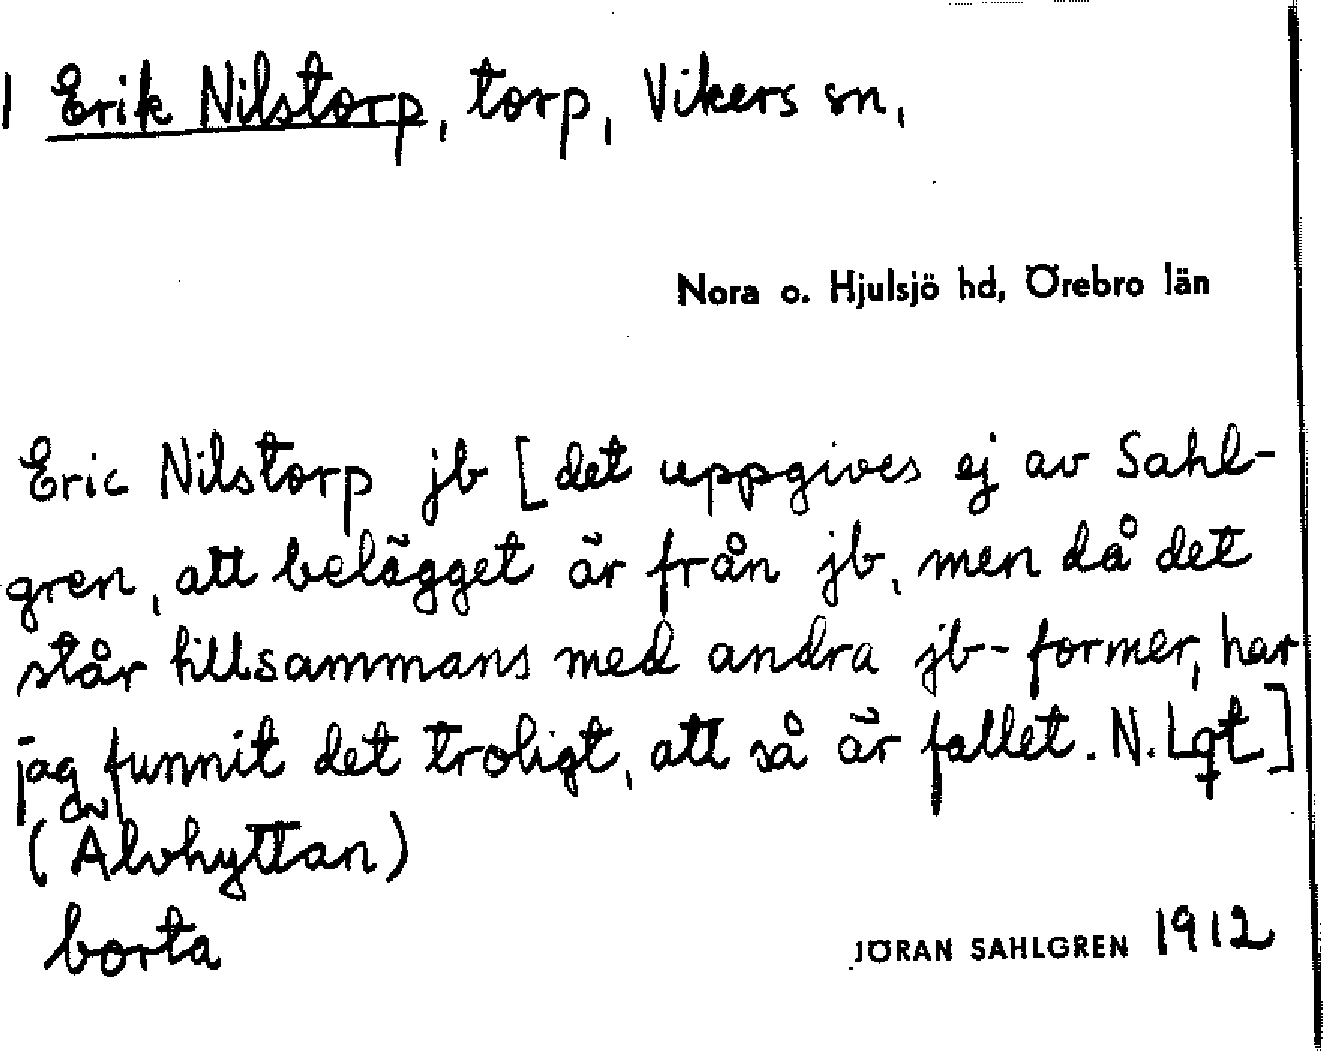 1 Erik Nilstorp, torp, Vikers sn,
Nora o. Hjulsjö hd, Örebro län
Eric Nilstorp jb [det uppgives ej av Sahl-
gren, att belägget är från jb, men då det
står tillsammans med andra jb-former, har
jag funnit det troligt, att så är fallet. N. Lqt]
(av Älvhyttan)
borta
JÖRAN SAHLGREN 1912